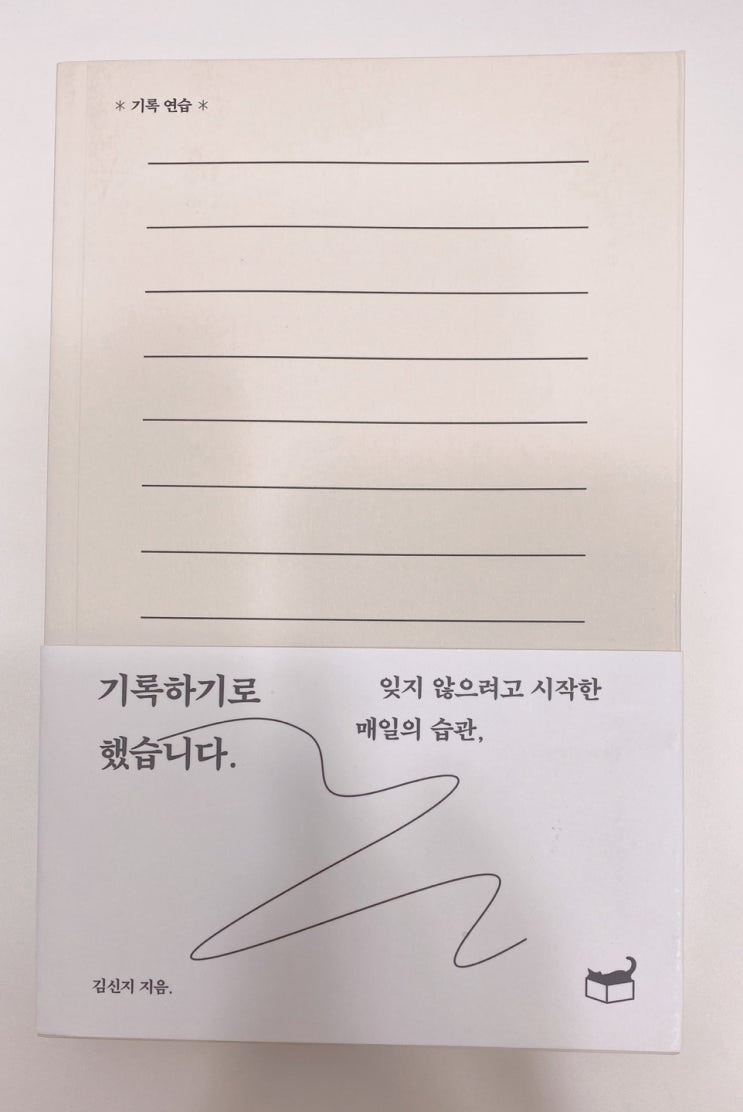 * 기록 연습 *
기록하기로
했습니다.
잊지 않으려고 시작한
매일의 습관,
김신지 지음.